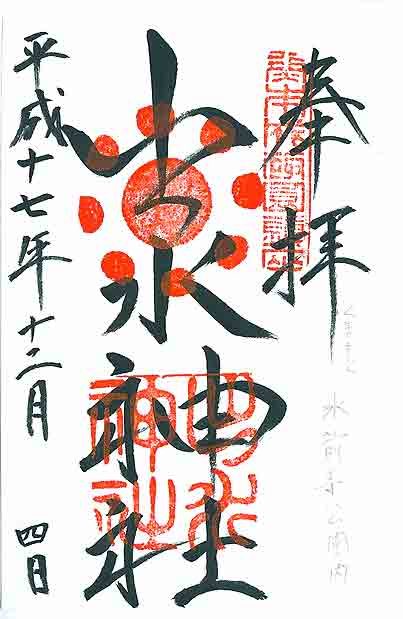 奉拝
水前寺公園内
出水神社
出水神社
平成十七年十二月四日